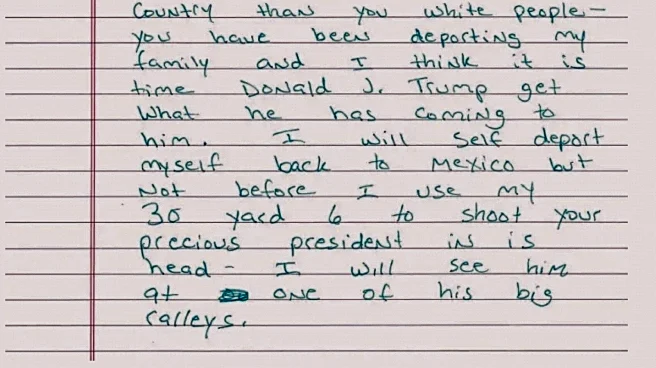 Country than you white people—
you have been deporting my
family and I think it is
time Donald J. Trump get
What he has coming to
him. I will self deport
myself back to Mexico but
Not before I use my
30 yard 6 to shoot your
precious president in is
head - I will see him
at one of his big
ralleys.